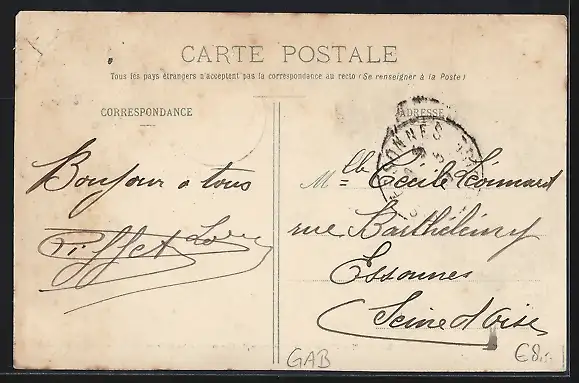 CARTE POSTALE
Tous les pays étrangers n'acceptent pas la correspondance au recto (Se renseigner à la Poste)
CORRESPONDANCE
ADRESSE
Bonjour a tous
Piffet
Mlle Cécile Léonnard
rue Barthélémy
Essonnes
Seine et Oise
GAB
€8.-